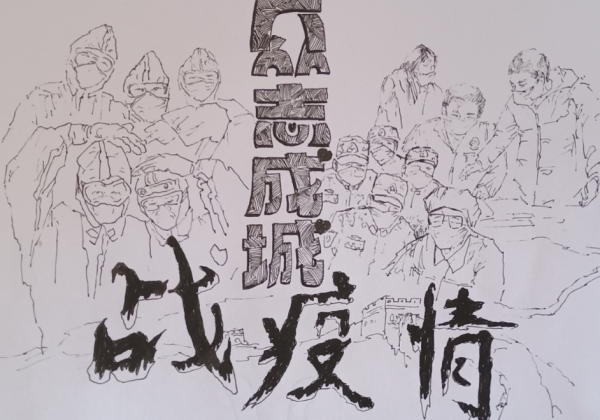 众志成城
战疫情